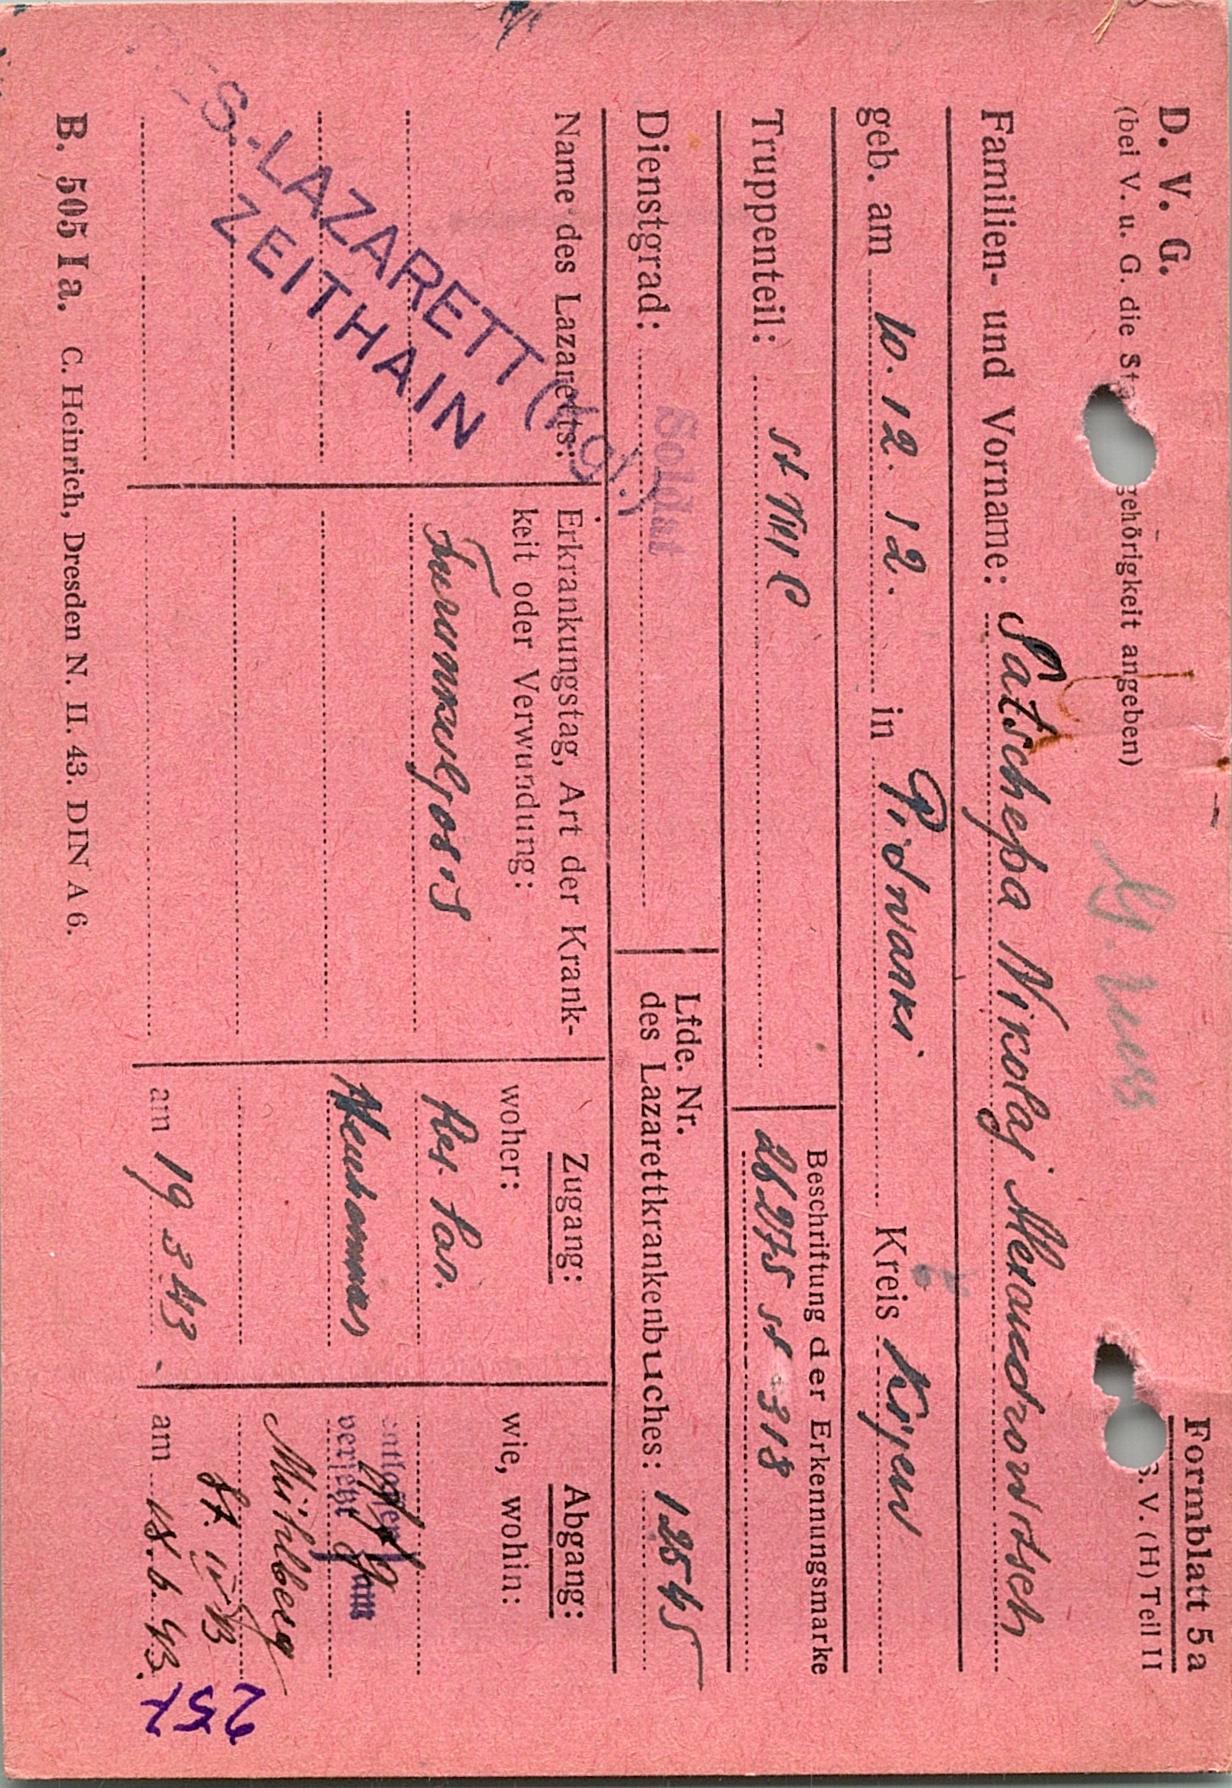 D. V. G.
Formblatt 5a
(bei V. u. G. die St gehörigkeit angeben)
S. V. (H) Teil II
Familien- und Vorname: Satscheβa Nikolaj Alexandrowitsch
geb. am 10. 12. 12. in Pidwanki Kreis Kijew
Truppenteil: St VIII C
Beschriftung der Erkennungsmarke
28275 St 318
Dienstgrad: Soldat
Lfde. Nr.
des Lazarettkrankenbuches: 12545
Name des Lazaretts:
RES.-LAZARETT (Kgf.)
ZEITHAIN
Erkrankungstag, Art der Krank-
keit oder Verwundung:
Furunkulosis
Zugang:
woher:
Res. Laz.
Neuhammer
am 19 3 43
Abgang:
wie, wohin:
entlassen
versetzt
Mühlberg
St. IV B
am 18. 6. 43.
B. 505 Ia. C. Heinrich, Dresden N. II. 43. DIN A 6.